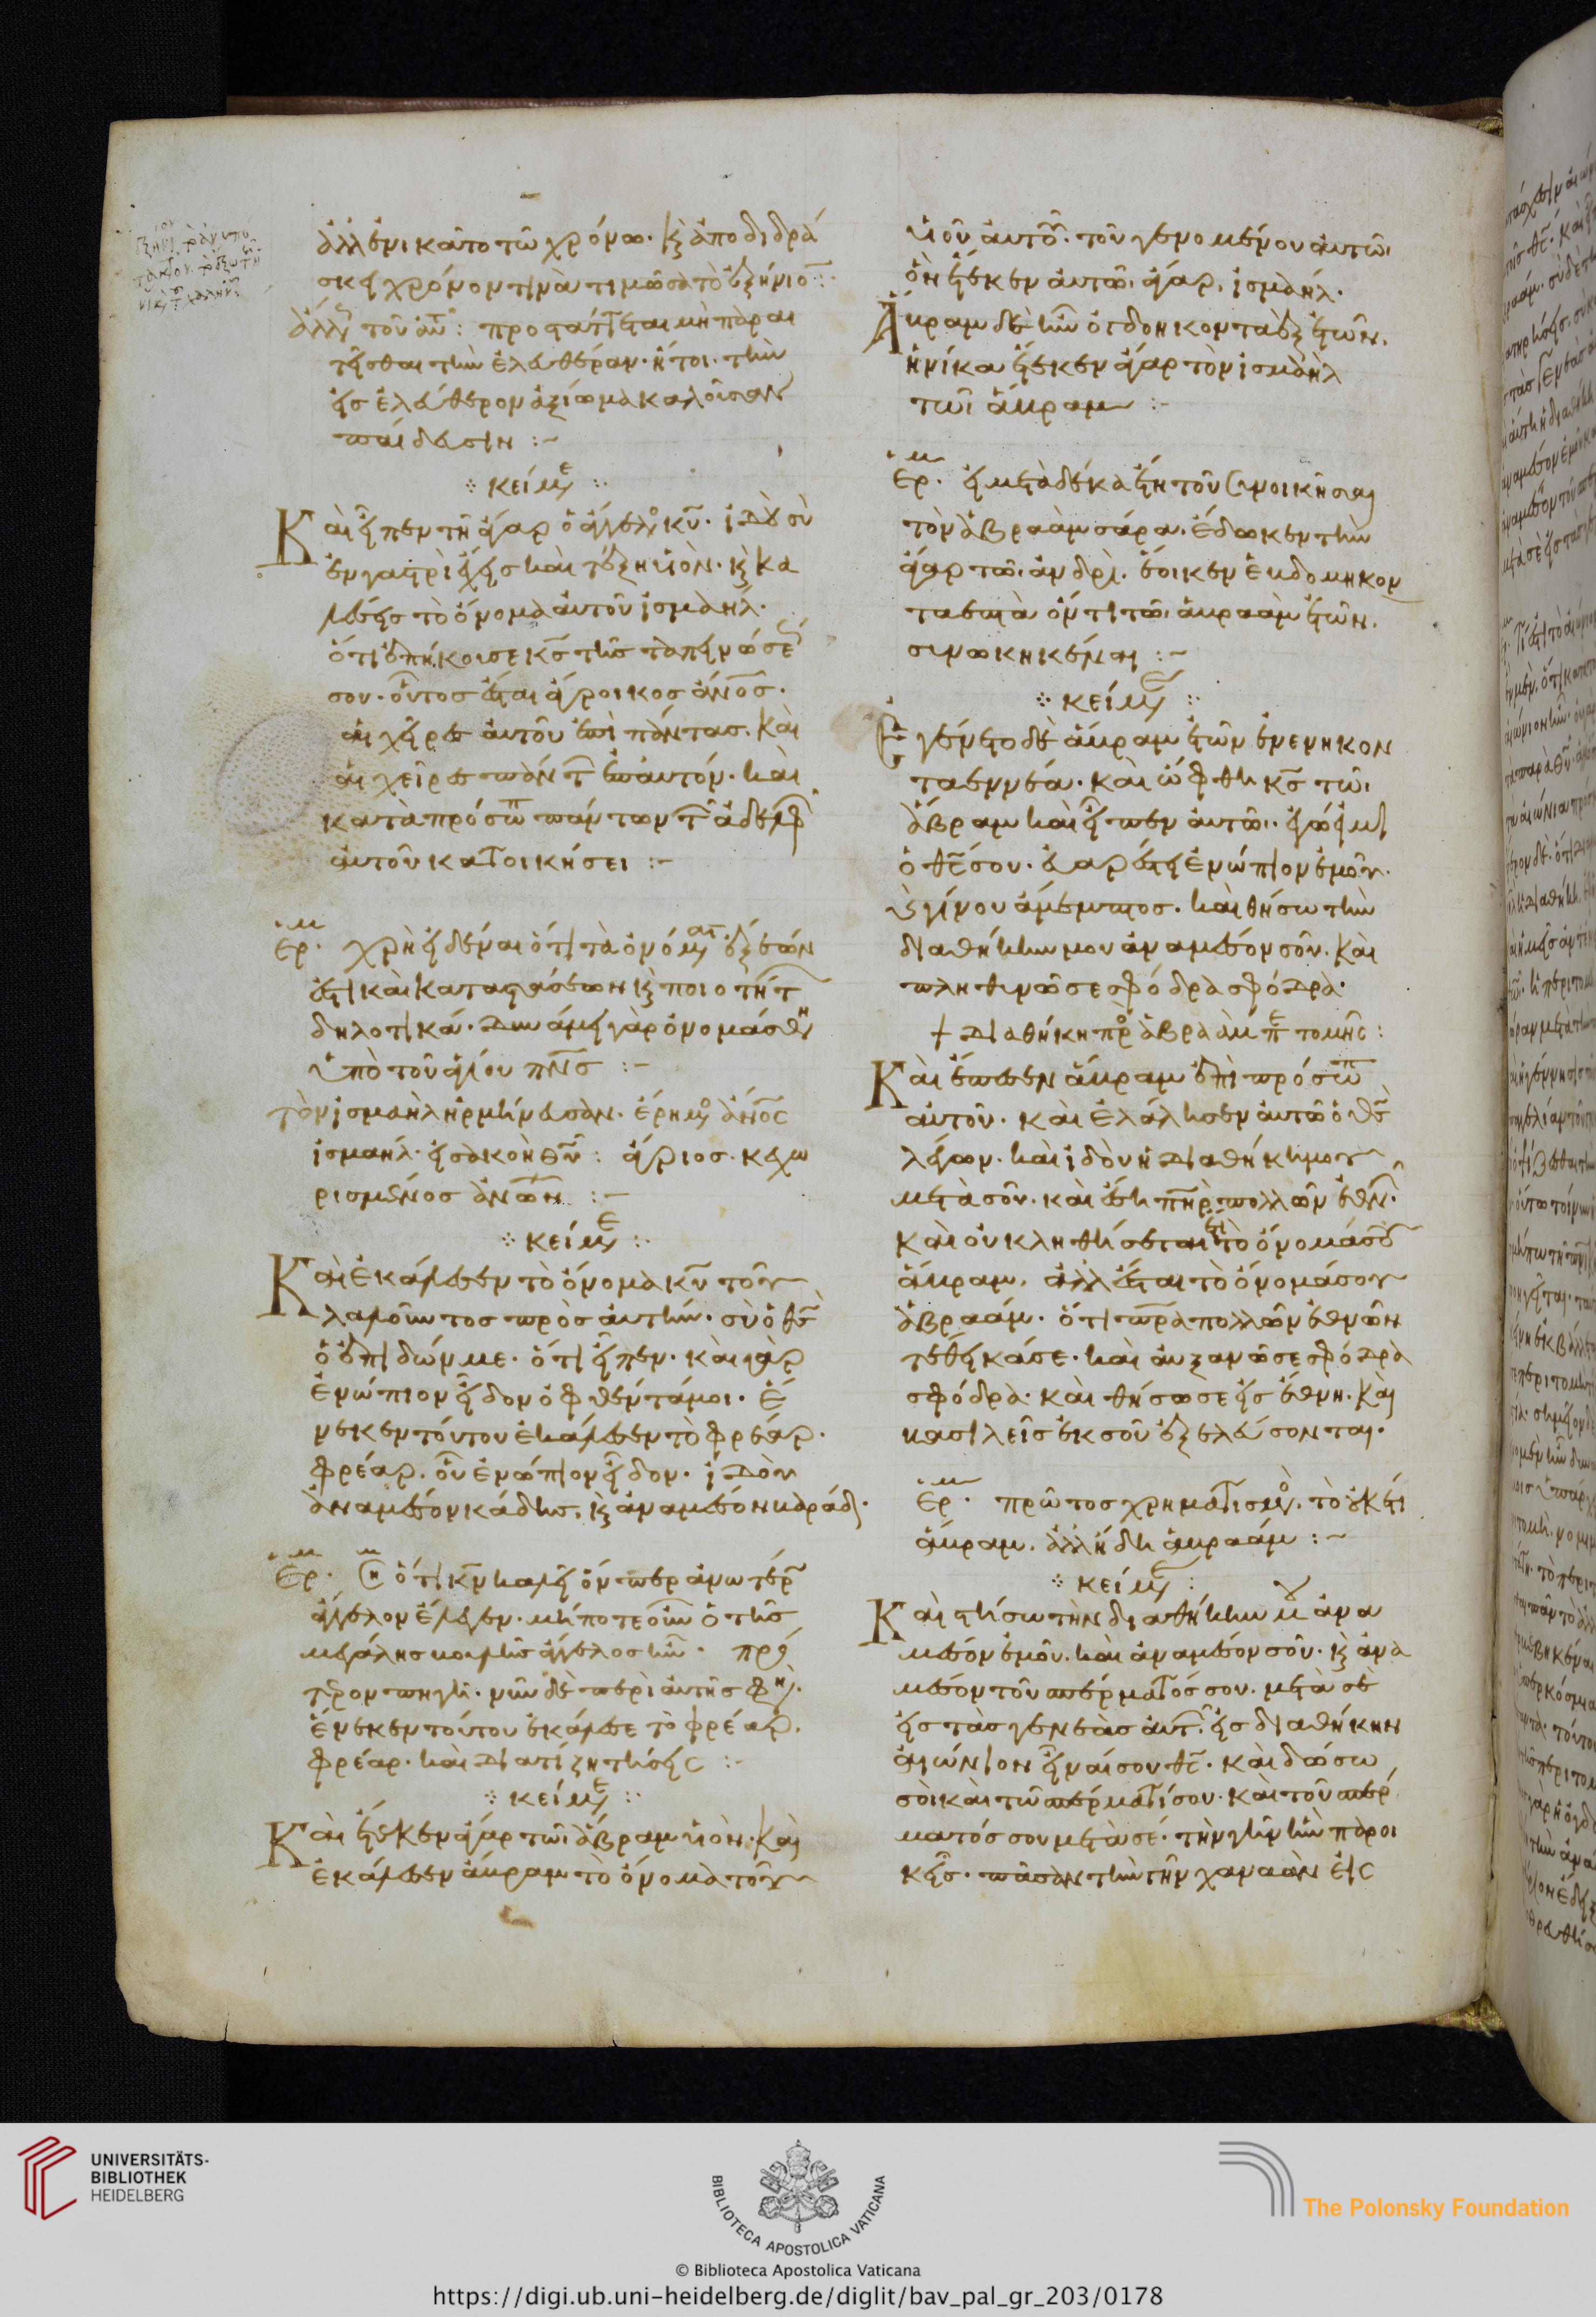 ἀλλ ἐνικᾶτο τῶ χρόνω. κ ἀποδιδρά
σκει χρόνον τινὰ
ἀλλ τοῦ : προστάττεται μὴ παραι
τεῖσθαι τὴν ἐλευθέραν. ἤτοι. τὴν
εἰς ἐλεύθερον ἀξίωμα καλοῦσαν
παίδευσιν :~
κείμε
Καὶ εἶπεν τῆ ἄγαρ ὁ ἄγγελ κυ. ἰδοὺ σὺ
ἐν γαστρὶ ἔχεις καὶ τέξη υἱὸν. κ κα
λέσεις τὸ ὄνομα αὐτοῦ ἰσμαὴλ.
ὅτι ἐπήκουσε κς τῆς ταπεινώσε
σου. οὗτος ἔσται ἄγροικος ἀνος.
αἱ χεῖρες αὐτοῦ ἐπὶ πάντας. καὶ
αἱ χεῖρες πάντ ἐπ αὐτόν. καὶ
κατὰ πρόσωπ πάντων τ ἀδελφ
αὐτοῦ κατοικήσει :~
Ερμ. χρὴ εἰδέναι ὅτι τὰ ὀνόματ ἕξεων
ἐστὶ καὶ καταστάσεων κ ποιοτήτ
δηλοτικά. δυνάμει γὰρ ὀνομάσθη
ὑπὸ τοῦ ἁγίου πνς :~
τὸν ἰσμαὴλ ἡρμήνευσαν. ἔρημ ἀνος
ἰσμαήλ. εἰσακοὴ θυ : ἄγριος. κεχω
ρισμένος ἀνων :~
κείμε
Καὶ ἐκάλεσεν τὸ ὄνομα κυ τοῦ
λαλοῦντος πρὸς αὐτήν. σὺ ὁ θς
ὁ ἐπιδών με. ὅτι εἶπεν. καὶ γὰρ
ἐνώπιον εἶδον ὀφθέντα μοι. ἕ
νεκεν τούτου ἐκάλεσεν τὸ φρέαρ.
φρέαρ. οὗ ἐνώπιον εἶδον. ἰδοὺ
ἀναμέσον κάδης, κ ἀναμέσον βαράδ.
Ερμ. ὅτι κν καλεῖ ὅνπερ ἀνωτέρ
ἄγγελον ἔλεγεν. μήποτε οὖν ὁ τῆς
μεγάλης βουλῆς ἄγγελος ἦν. πρό
τερον πηγή. νῦν δὲ περὶ αὐτῆς φη.
ἕνεκεν τούτου ἐκάλεσε τὸ φρέαρ.
φρέαρ. καὶ διατί ζητήσεις :~
κείμε
Καὶ ἔτεκεν ἄγαρ τῶι ἄβραμ υἱὸν. καὶ
ἐκάλεσεν ἄβραμ τὸ ὄνομα τοῦ
υἱοῦ αὐτοῦ. τοῦ γενομένου αὐτῶι
ὃν ἔτεκεν αὐτῶ. ἄγαρ, ἰσμαὴλ.
Ἄβραμ δὲ ἦν ὀγδοηκονταὲξ ἐτῶν.
ἡνίκα ἔτεκεν ἄγαρ τὸν ἰσμαὴλ
τῶι ἄβραμ :~
Ερμ. εἰ μετὰ δέκα ἔτη τοῦ συνοικῆσαι
τὸν ἀβραὰμ σάρα. ἔδωκεν τὴν
ἄγαρ τῶ ἀνδρὶ. ἔοικεν ἑβδομηκον
ταεπτὰ ὄντι τῶ. ἀβραὰμ ἐτῶν.
συνωκηκέναι :~
κείμε
Ἐγένετο δὲ ἄβραμ ἐτῶν ἐνενηκον
ταεννέα. καὶ ὤφθη κς τῶι
ἄβραμ καὶ εἶπεν αὐτῶ. ἐγώ εἰμι
ὁ θς σου. εὐαρέστει ἐνώπιον ἐμοῦ.
κ γίνου ἄμεμπτος. καὶ θήσω τὴν
διαθήκην μου ἀναμέσον σοῦ. καὶ
πληθυνῶ σε σφόδρα σφόδρα.
+ διαθήκη πρ ἀβραὰμ π τομῆς :
Καὶ ἔπεσεν ἄβραμ ἐπὶ πρόσωπ
αὐτοῦ. καὶ ἐλάλησεν αὐτῶ ὁ θς
λέγων. καὶ ἰδοὺ ἡ διαθήκη μου
μετὰ σοῦ. καὶ ἔση πηρ πολλῶν ἐθν.
καὶ οὐ κληθήσεται ἔτι τὸ ὄνομά σου
ἄβραμ. ἀλλ ἔσται τὸ ὄνομά σου
ἀβραάμ. ὅτι πρα πολλῶν ἐθνῶν
τέθεικά σε. καὶ αὐξανῶ σε σφόδρα
σφόδρα. καὶ θήσω σε εἰς ἔθνη. καὶ
βασιλεῖς ἐκ σοῦ ἐξελεύσονται.
Ερμ. πρῶτος χρηματισμ, τὸ οὐκ ἔτι
ἄβραμ. ἀλλ ἤδη ἀβραάμ :~
κείμε
Καὶ στήσω τὴν διαθήκην μου ἀνα
μέσον ἐμοῦ. καὶ ἀναμέσον σοῦ. κ ἀνα
μέσον τοῦ σπέρματός σου. μετὰ σὲ
εἰς τὰς γενεὰς αὐτ. εἰς διαθήκην
αἰώνιον εἶναί σου θς. καὶ δώσω
σοὶ καὶ τῶ σπέρματί σου. καὶ τοῦ σπέρ
ματός σου μετὰ σέ. τὴν γῆν ἣν παροι
κεῖς. πᾶσαν τὴν γῆν χαναὰν εἰς
UNIVERSITÄTS-
BIBLIOTHEK
HEIDELBERG
BIBLIOTECA APOSTOLICA VATICANA
The Polonsky Foundation
© Biblioteca Apostolica Vaticana
https://digi.ub.uni-heidelberg.de/diglit/bav_pal_gr_203/0178